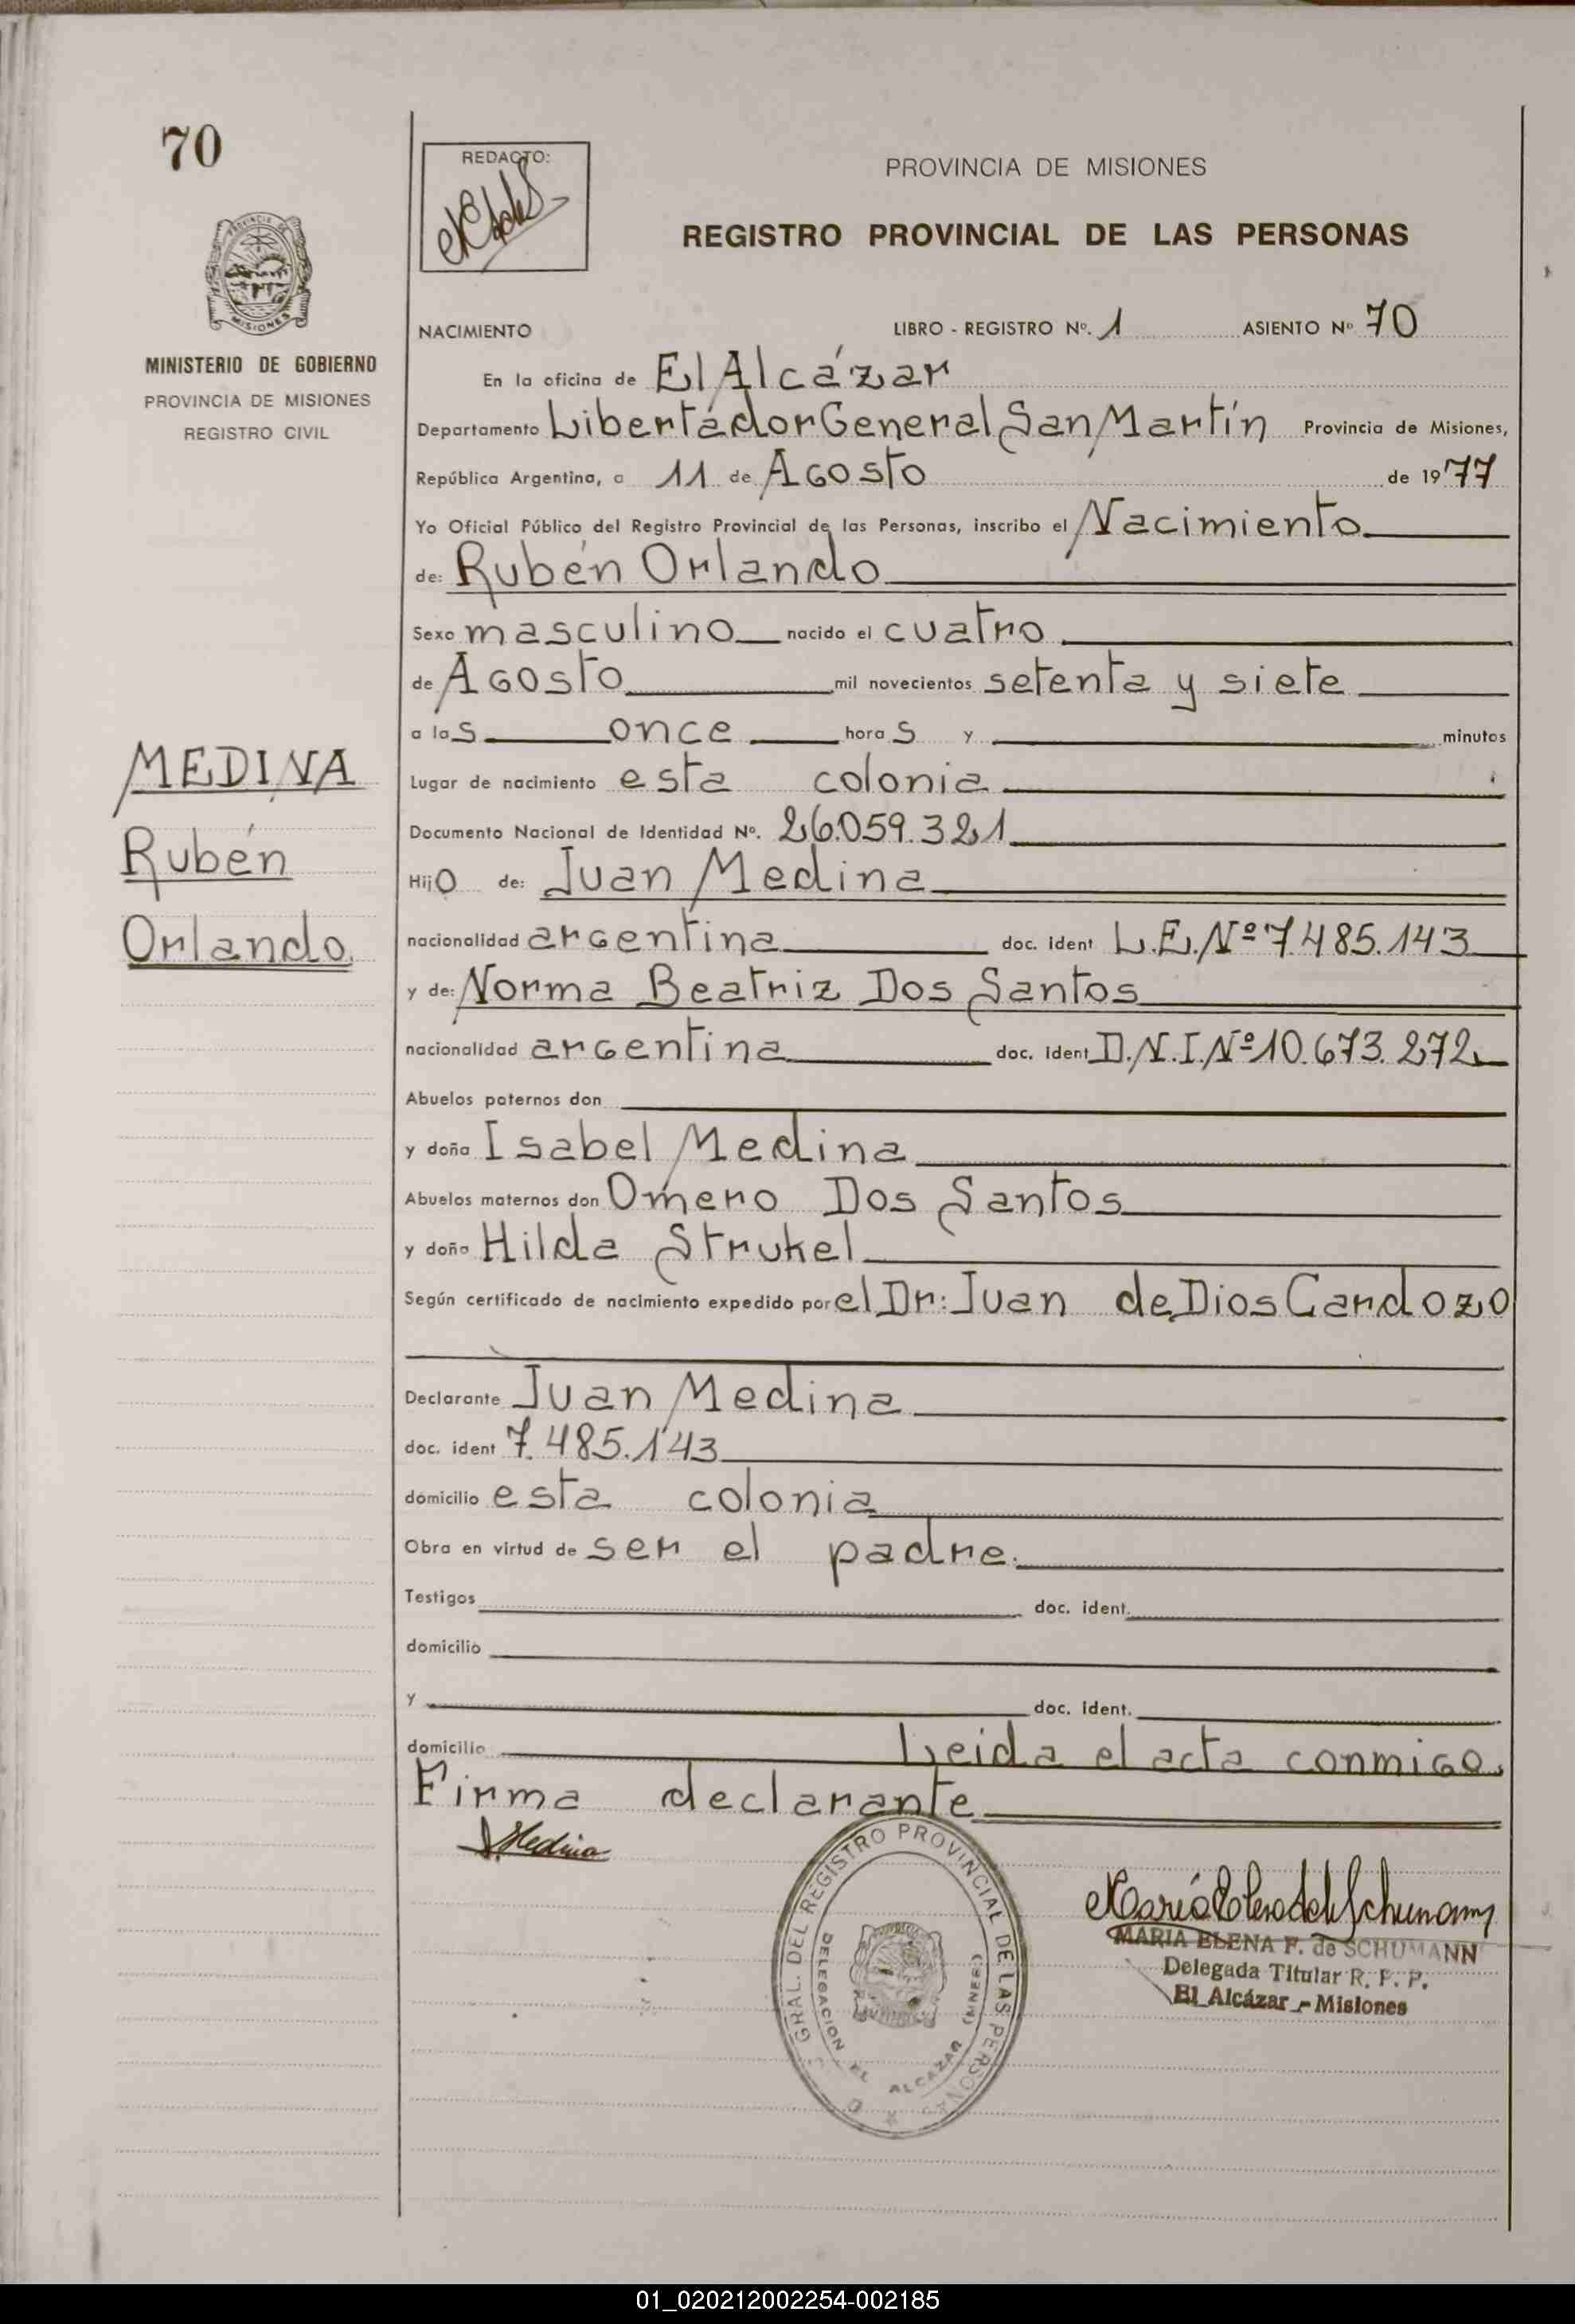 70
REDACTO:
PROVINCIA DE MISIONES
REGISTRO PROVINCIAL DE LAS PERSONAS
PROVINCIA DE
MISIONES
MINISTERIO DE GOBIERNO
PROVINCIA DE MISIONES
REGISTRO CIVIL
NACIMIENTO LIBRO - REGISTRO Nº. 1 ASIENTO Nº 70
En la oficina de El Alcázar
Departamento Libertádor General San Martín Provincia de Misiones,
República Argentina, a 11 de Agosto de 1977
Yo Oficial Público del Registro Provincial de las Personas, inscribo el Nacimiento
de: Rubén Orlando
Sexo masculino nacido el cuatro
de Agosto mil novecientos setenta y siete
a las once horas y minutos
MEDINA
Rubén
Orlando.
Lugar de nacimiento esta colonia
Documento Nacional de Identidad Nº. 26.059.321
Hijo de: Juan Medina
nacionalidad argentina doc. ident L.E.Nº 7.485.143
y de: Norma Beatriz Dos Santos
nacionalidad argentina doc. ident D.N.I.Nº 10.673.272
Abuelos paternos don
y doña Isabel Medina
Abuelos maternos don Omero Dos Santos
y doña Hilda Strukel
Según certificado de nacimiento expedido por el Dr: Juan de Dios Cardozo
Declarante Juan Medina
doc. ident 7.485.143
domicilio esta colonia
Obra en virtud de ser el padre.
Testigos doc. ident.
domicilio
y doc. ident.
domicilio Leida el acta conmigo.
Firma declarante
J. Medina
D. GRAL. DEL REGISTRO PROVINCIAL DE LAS PERSONAS
DELEGACION EL ALCAZAR (MNES.)
MARIA ELENA F. de SCHUMANN
Delegada Titular R. P. P.
El Alcázar - Misiones
01_020212002254-002185